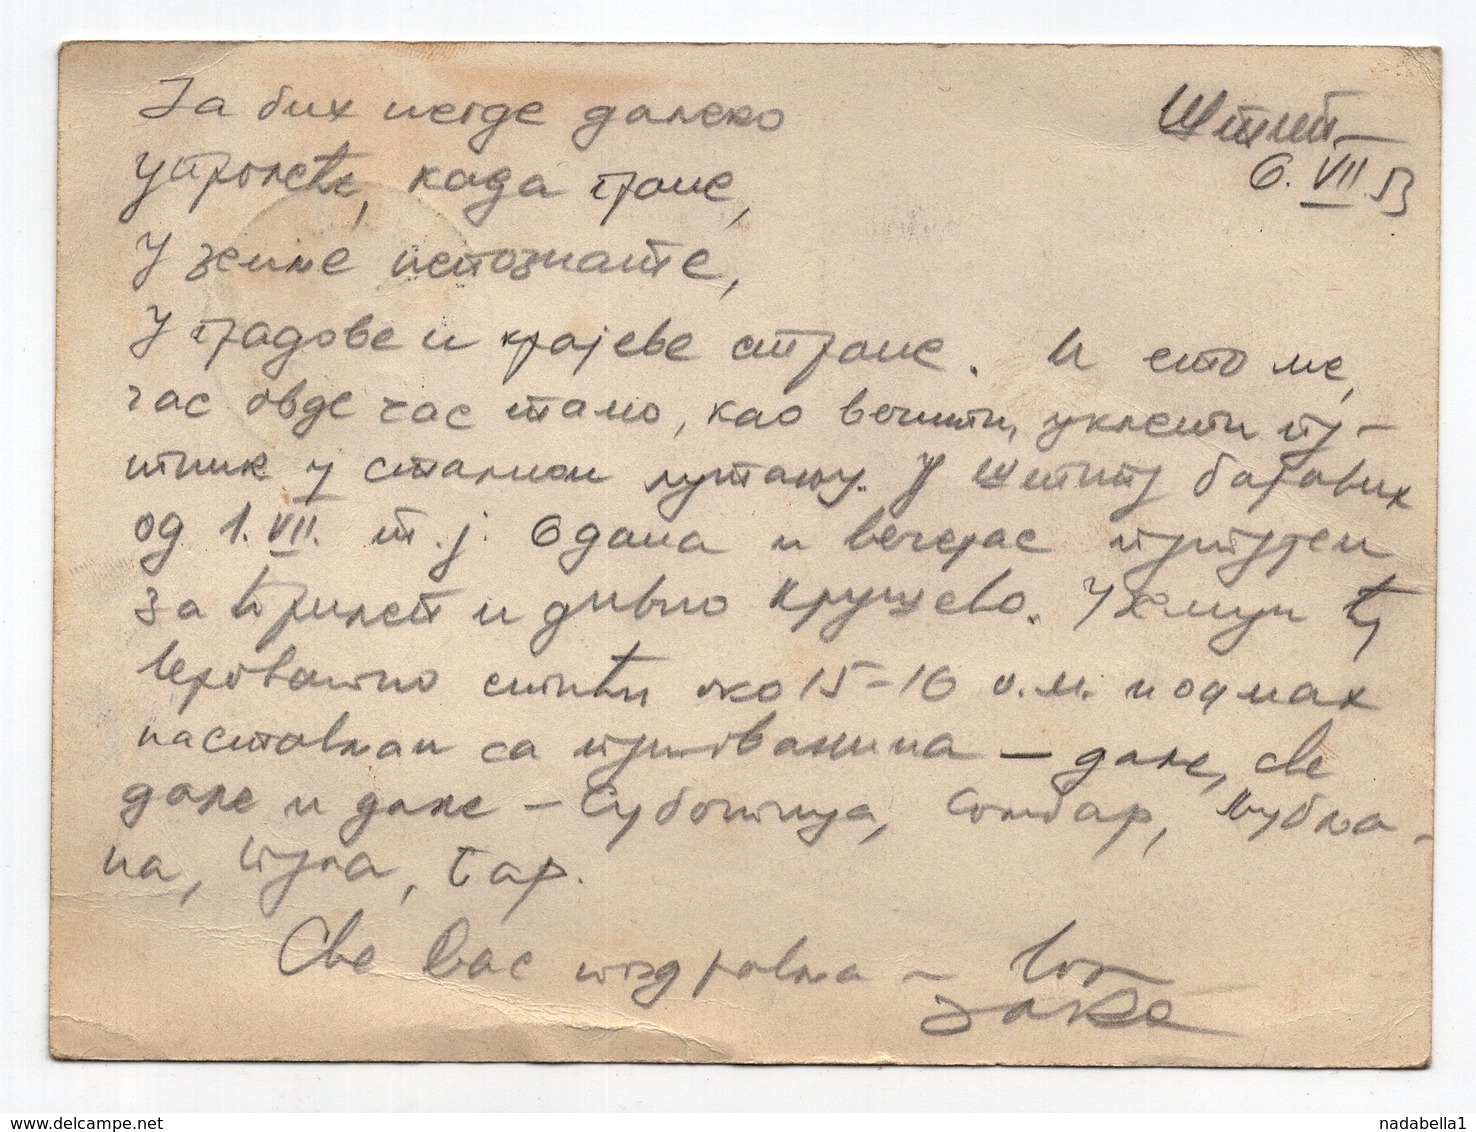 Штип
6. VII 53
Ја бих негде далеко
упролеће, када гране,
У земље непознате,
У градове и крајеве стране. И ето ме,
час овде час тамо, као вечити, уклети пу-
тник у сталном лутању. У Штипу боравих
од 1. VII. т.ј. 6 дана и вечерас
за Прилеп и дивно Крушево. У Земун ћу
вероватно стићи око 15-16 о.м. и одмах
настављам са путовањима – даље, све
даље и даље – Суботица, Сомбор, Љубља-
на, Пула, Бар.
Све Вас поздравља – Ваш
Заке
nadabella1